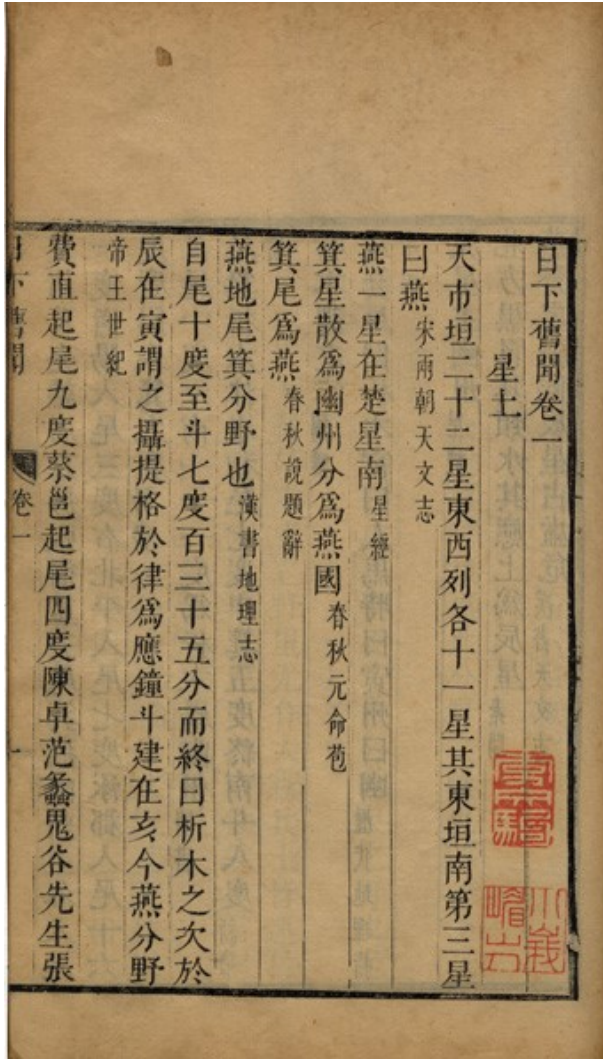 日下舊聞卷一
星土
天市垣二十二星東西列各十一星其東垣南第三星
曰燕宋兩朝天文志
燕一星在楚星南星經
箕星散爲幽州分爲燕國春秋元命苞
箕尾爲燕春秋說題辭
燕地尾箕分野也漢書地理志
自尾十度至斗七度百三十五分而終曰析木之次於
辰在寅謂之攝提格於律爲應鐘斗建在亥今燕分野
帝王世紀
費直起尾九度蔡邕起尾四度陳卓范蠡鬼谷先生張
日下舊聞 卷一 一